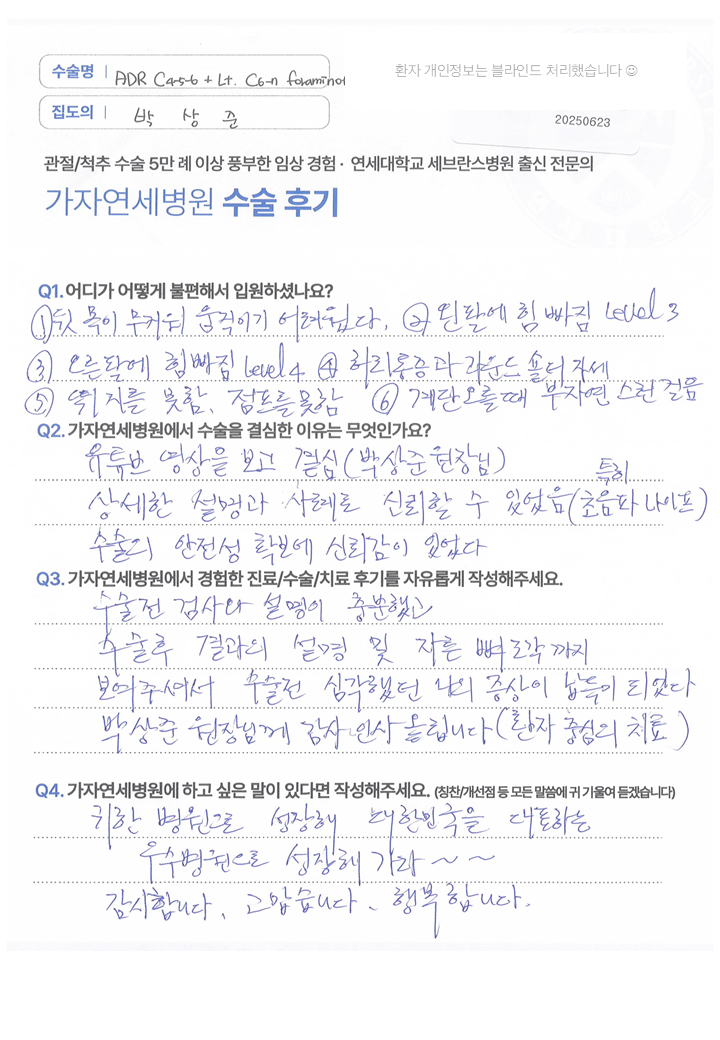 수술명 | ADR C4-5-6 + Lt. C6-n foraminor
환자 개인정보는 블라인드 처리했습니다 ☺
집도의 | 박 상 준
20250623
관절/척추 수술 5만 례 이상 풍부한 임상 경험 · 연세대학교 세브란스병원 출신 전문의
가자연세병원 수술 후기
Q1. 어디가 어떻게 불편해서 입원하셨나요?
① 뒷 목이 무거워 움직이기 어려웠다. ② 왼팔에 힘 빠짐 Level 3
③ 오른팔에 힘빠짐 Level 4 ④ 허리통증과 라운드 숄더 자세
⑤ 뛰지를 못함, 점프를 못함 ⑥ 계단오를때 부자연스런 걸음
Q2. 가자연세병원에서 수술을 결심한 이유는 무엇인가요?
유튜브 영상을 보고 결심 (박상준 원장님)
특히
상세한 설명과 사례로 신뢰할 수 있었음 (초음파 나이프)
수술의 안전성 확보에 신뢰감이 있었다
Q3. 가자연세병원에서 경험한 진료/수술/치료 후기를 자유롭게 작성해주세요.
수술전 검사와 설명이 충분했고
수술후 결과의 설명 및 자른 뼈조각까지
보여주셔서 수술전 심각했던 나의 증상이 납득이 되었다
박상준 원장님께 감사 인사 올립니다 (환자 중심의 치료)
Q4. 가자연세병원에 하고 싶은 말이 있다면 작성해주세요. (칭찬/개선점 등 모든 말씀에 귀 기울여 듣겠습니다)
귀한 병원으로 성장해 대한민국을 대표하는
우수병원으로 성장해 가라 ~ ~
감사합니다. 고맙습니다. 행복합니다.